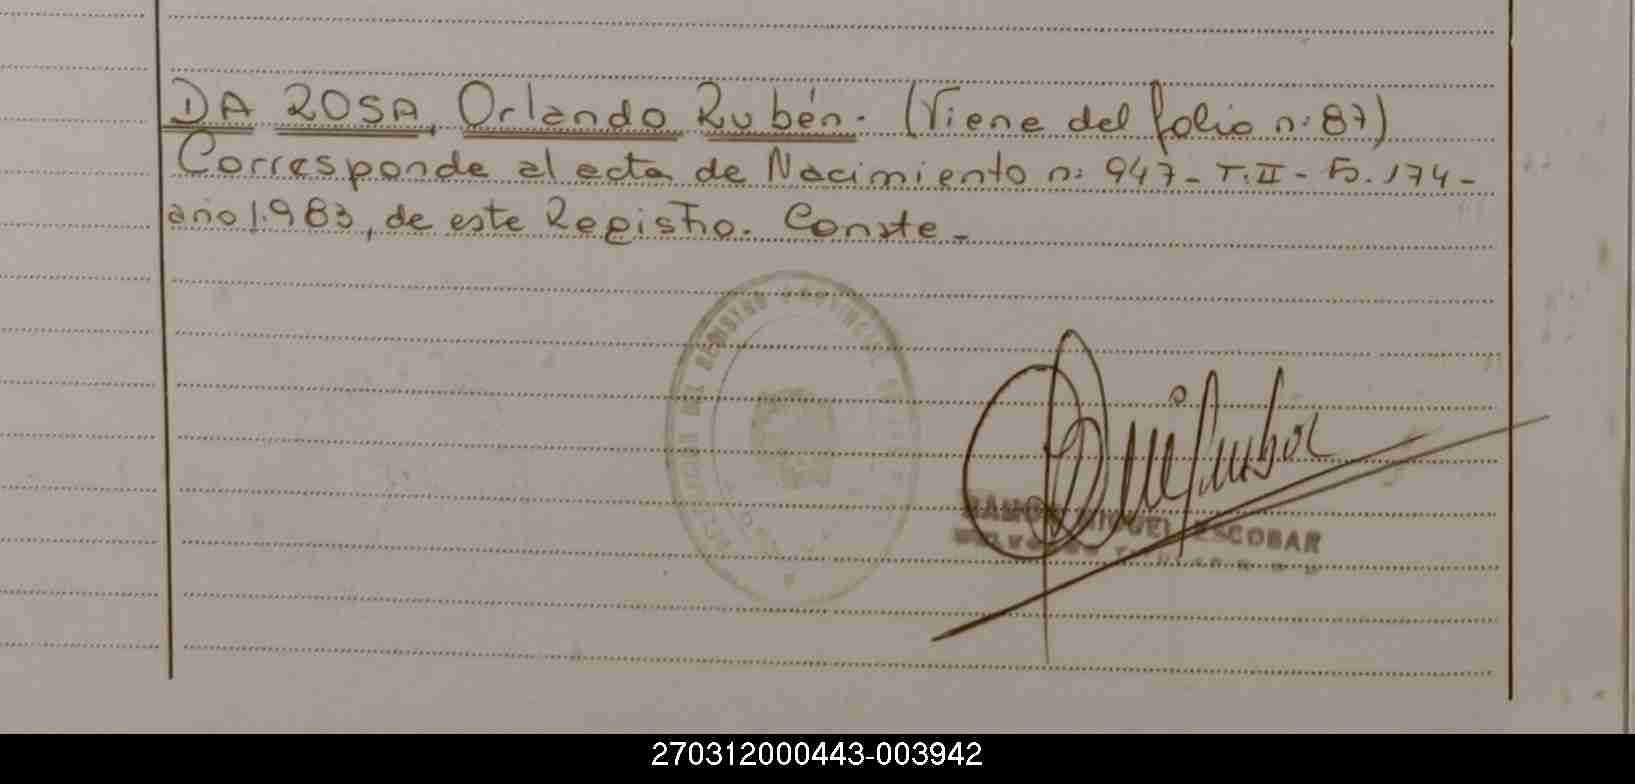 DA ROSA, Orlando Rubén. (Viene del folio n: 87)
Corresponde al acta de Nacimiento n: 947- T.II - Fo. 174-
año 1.983, del este Registro. Conste-
DEL REGISTRO PROVINCIAL
RAMON MIGUEL ESCOBAR
270312000443-003942